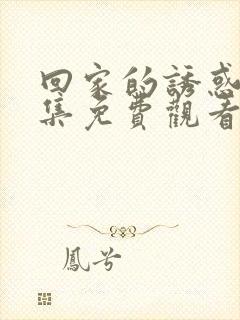 回家的誘惑
集免費觀看
鳳兮